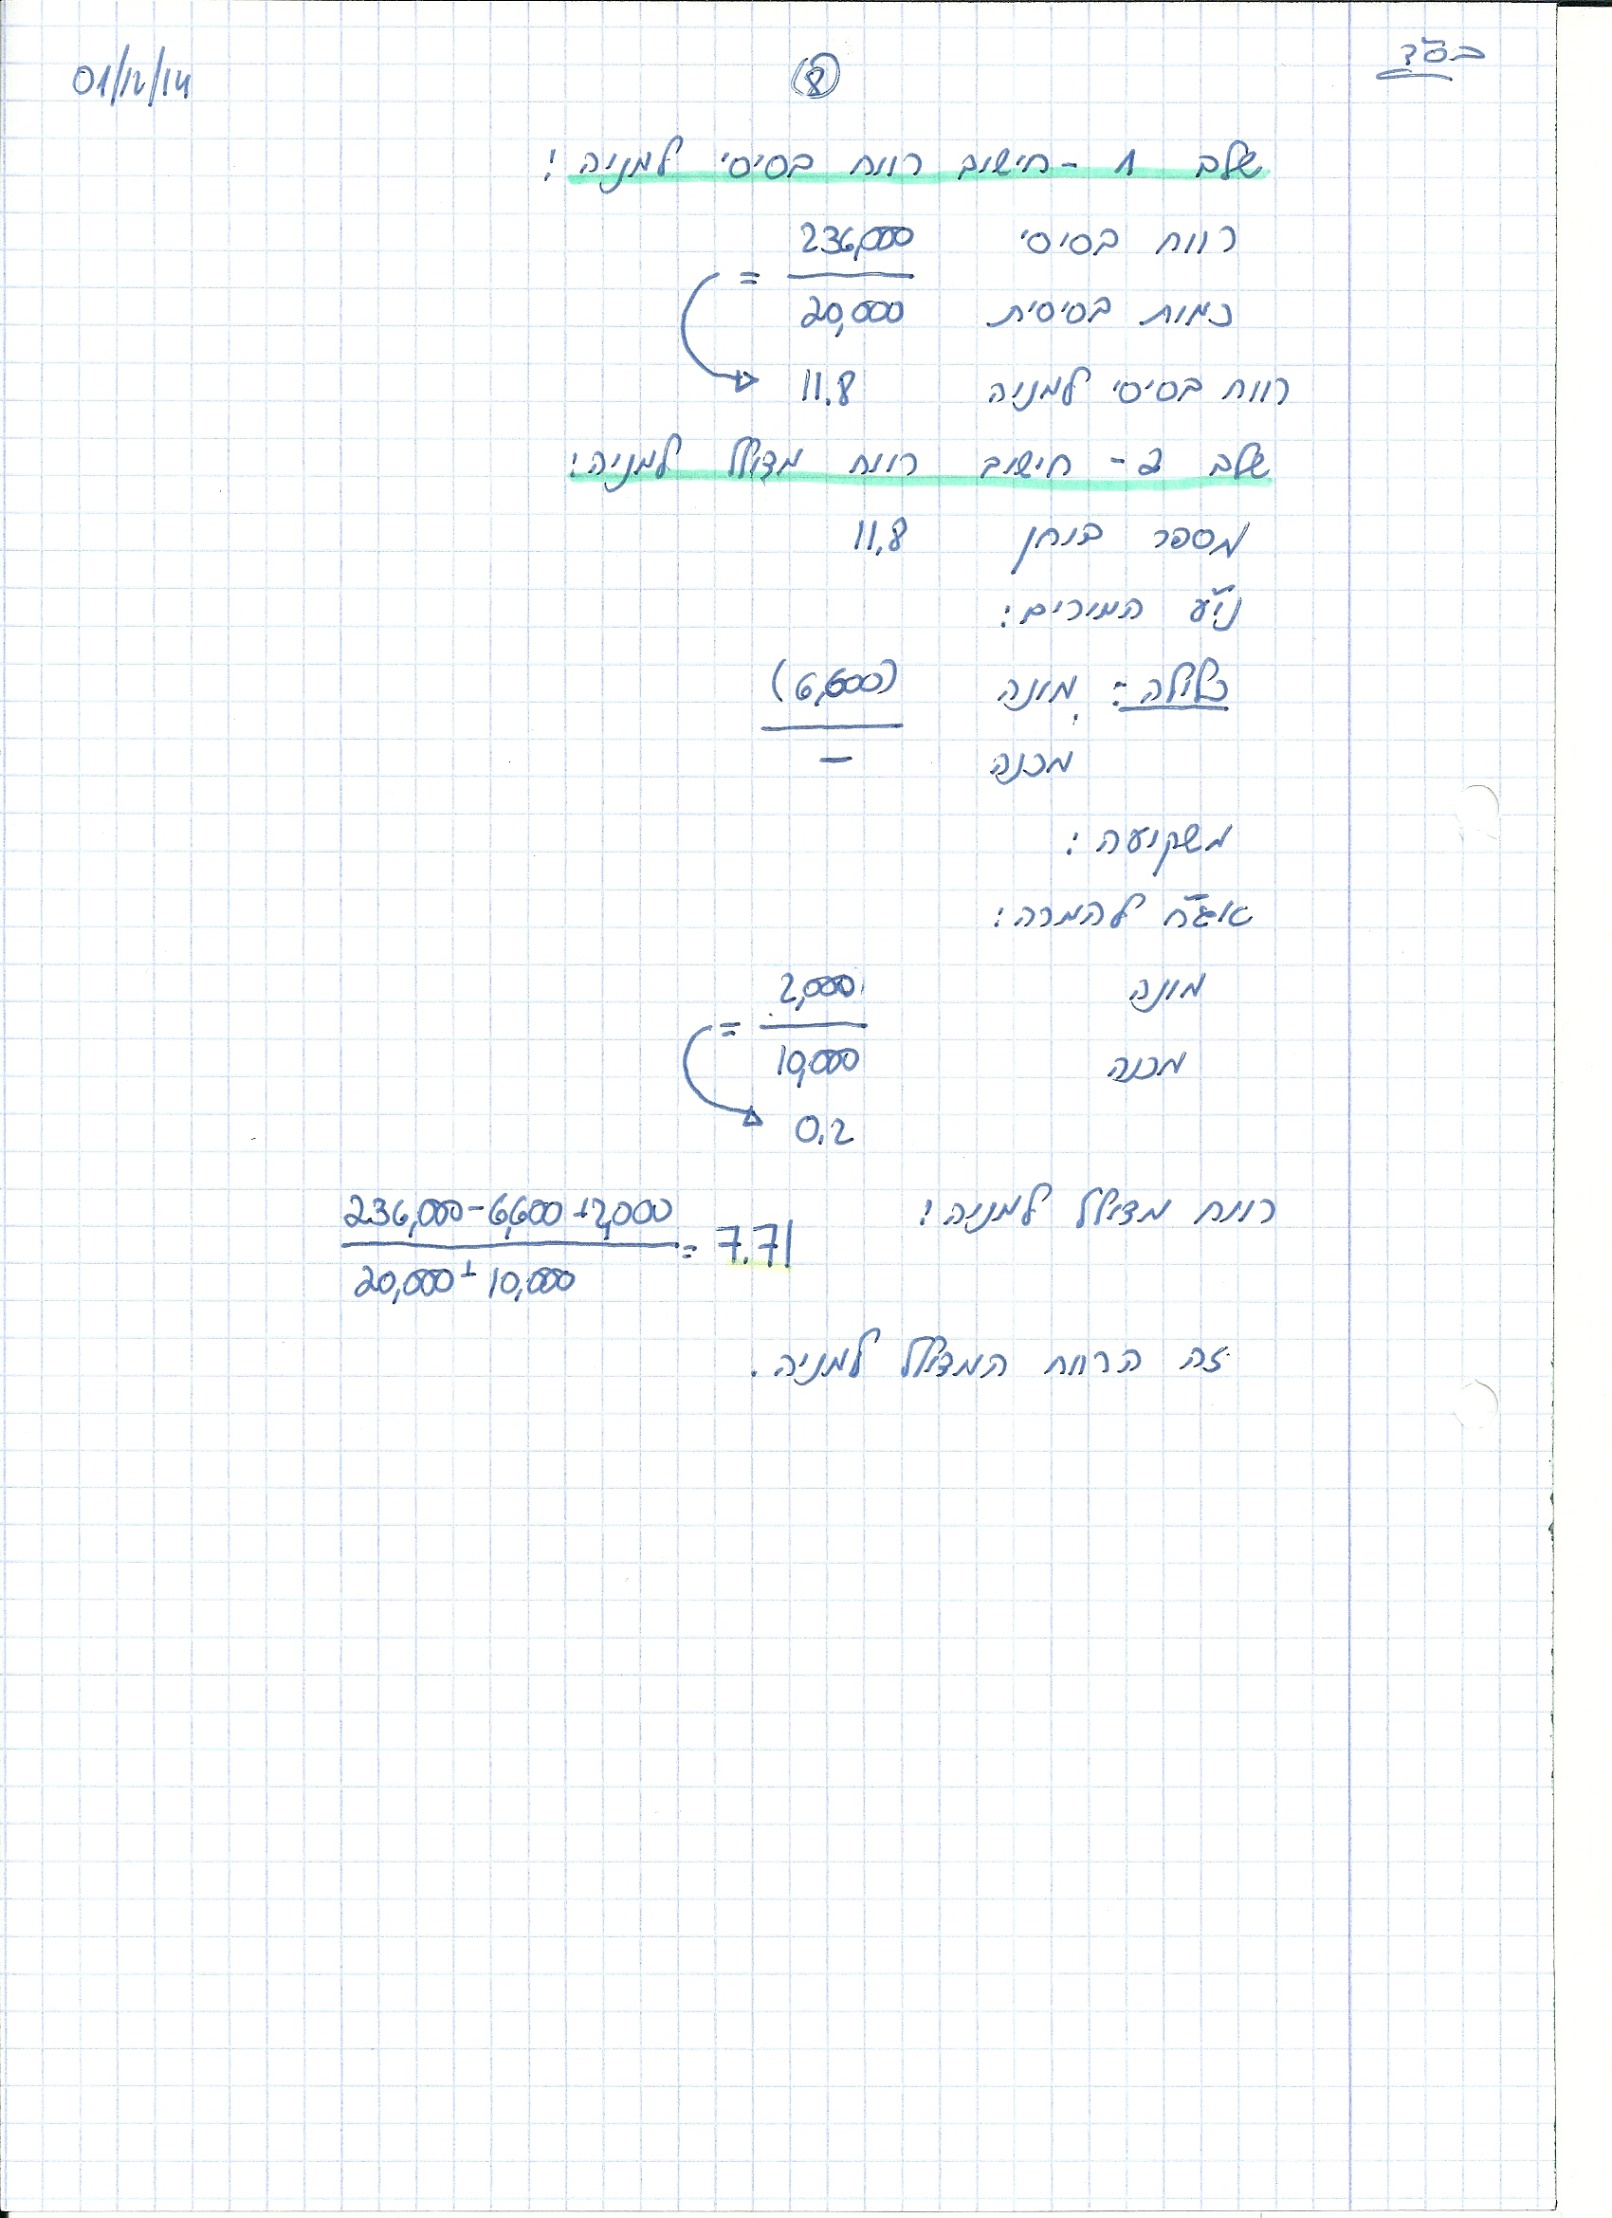 בס"ד
8
01/12/14
שלב 1 - חישוב רווח בסיסי למניה:
רווח בסיסי 236,000
=
כמות בסיסית 20,000
רווח בסיסי למניה 11.8
שלב 2 - חישוב רווח מדולל למניה:
מספר בוחן 11.8
ני"ע המירים:
כלולה: מונה (6,600)
מכנה –
משקיעה:
אג"ח להמרה:
מונה 2,000
=
מכנה 10,000
0.2
רווח מדולל למניה:
236,000 - 6,600 + 2,000
= 7.71
20,000 + 10,000
זה הרווח המדולל למניה.